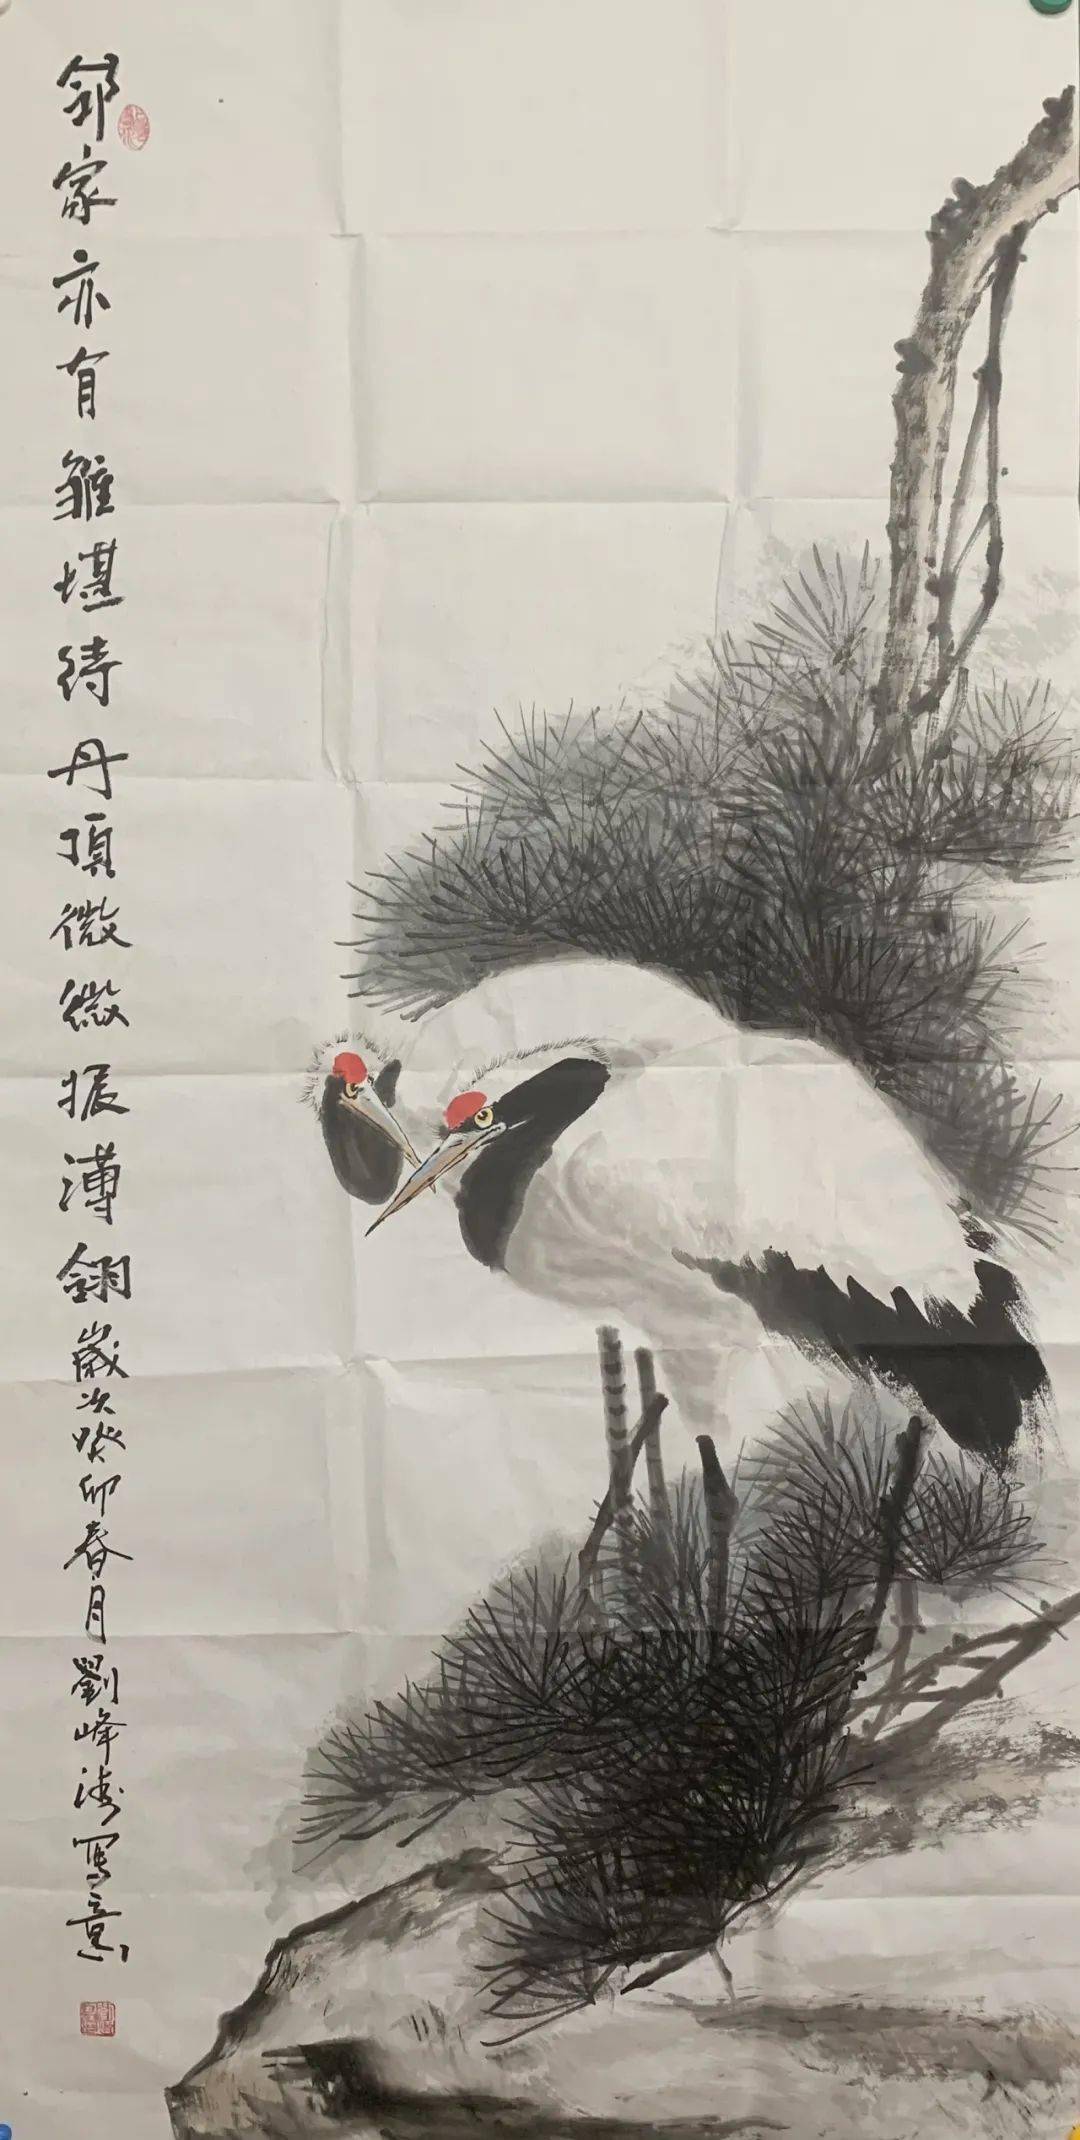 邻家亦有雏堪待丹頂微微振薄翎歲次癸卯春月劉峰涛寫意